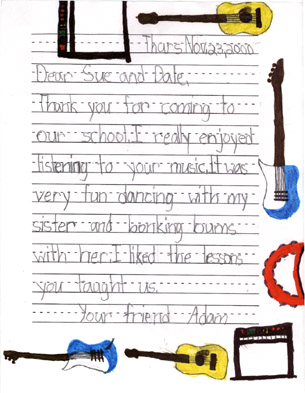 Thurs. Nov. 23, 2000
Dear Sue and Dale,
Thank you for coming to
our school. I really enjoyed
listening to your music. It was
very fun dancing with my
sister and bonking bums
with her. I liked the lessons
you taught us.
Your friend Adam